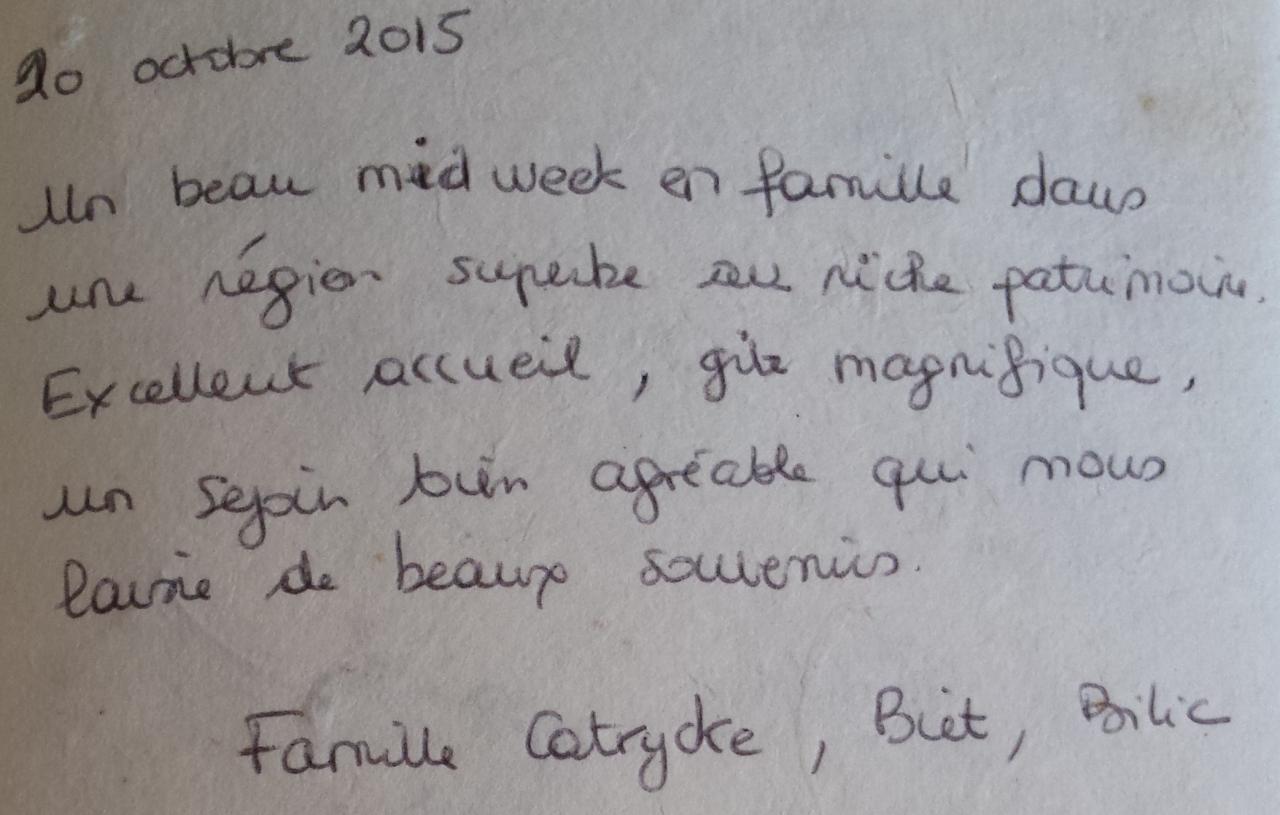 20 octobre 2015
Un beau midweek en famille dans
une région superbe au riche patrimoine.
Excellent accueil, gîte magnifique,
un sejour bien agréable qui nous
laisse de beaux souvenirs.
Famille Catrycke, Biet, Bilic